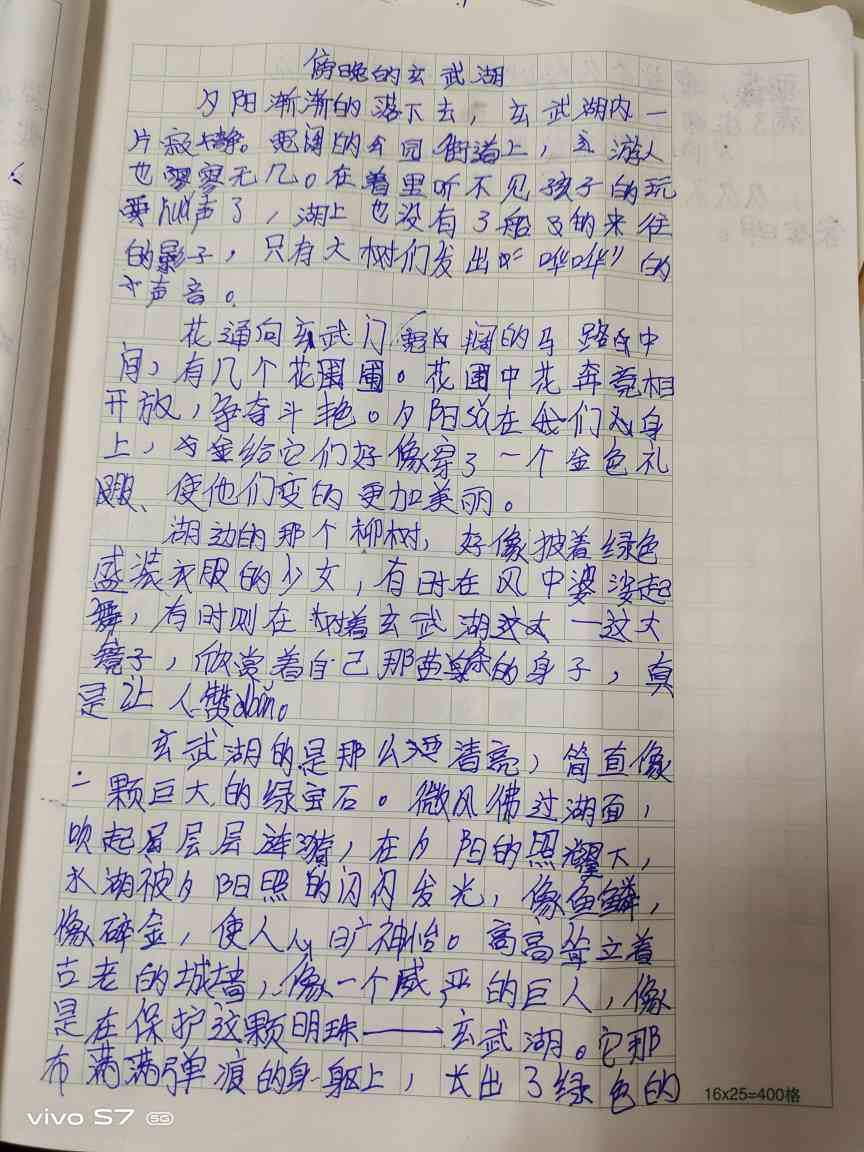 傍晚的玄武湖
夕阳渐渐的落下去，玄武湖内一
片寂静。宽阔的公园街道上，游人
也寥寥无几。在着里听不见孩子的玩
耍声了，湖上也没有了船的来往
的影子，只有大树们发出“哗哗”的
声音。
花通向玄武门宽阔的马路中
间，有几个花圃。花圃中花奔竞相
开放，争奇斗艳。夕阳在我们身
上，给它们好像穿了一个金色礼
服、使他们变的更加美丽。
湖边的那个柳树，好像披着绿色
盛装衣服的少女，有时在风中婆娑起
舞，有时则在对着玄武湖这大
镜子，欣赏着自己那苗条的身子，真
是让人赞
玄武湖的是那么清亮，简直像
一颗巨大的绿宝石。微风佛过湖面，
吹起层层涟漪，在夕阳的照耀下，
水湖被夕阳照的闪闪发光，像鱼鳞，
像碎金，使人心旷神怡。高高耸立着
古老的城墙，像一个威严的巨人，像
是在保护这颗明珠——玄武湖。它那
布满满弹痕的身躯上，长出了绿色的
16x25=400格
vivo S7 5G